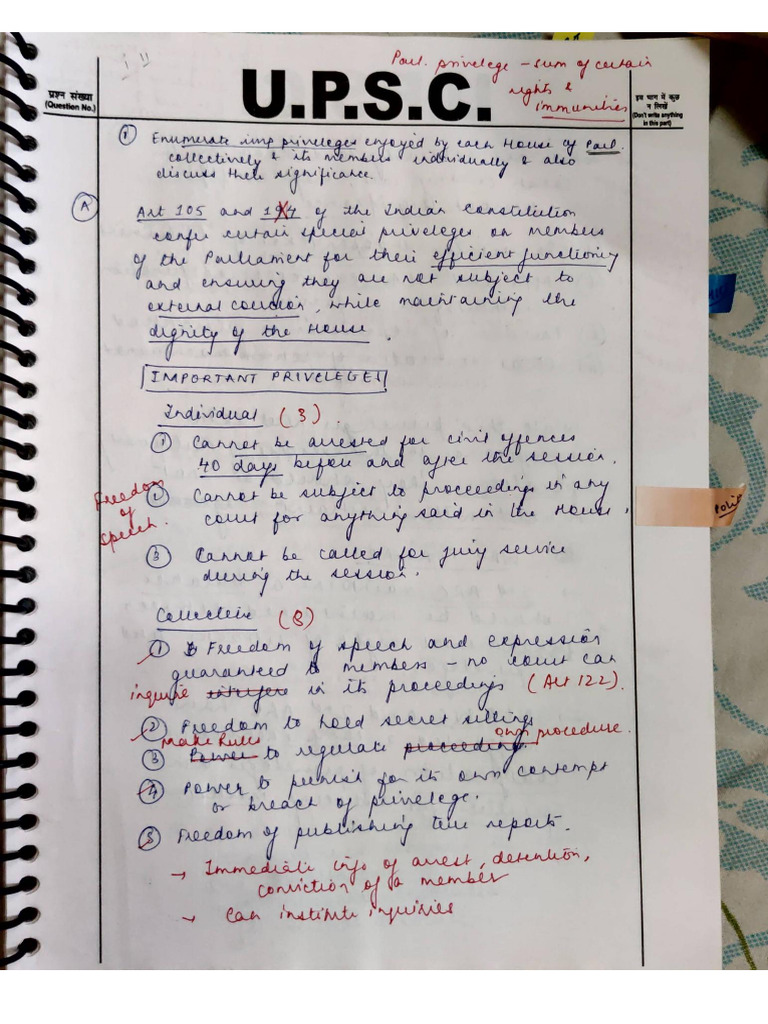 Parl. privelege - sum of certain
rights &
immunities
प्रश्न संख्या
(Question No.)
U.P.S.C.
इस भाग में कुछ
न लिखें
(Don't write anything
in this part)
① Enumerate imp priveleges enjoyed by each House of Parl.
collectively & its members individually & also
discuss their significance.
A Art 105 and 194 of the Indian Constitution
confer certain special priveleges on members
of the Parliament for their efficient functioning
and ensuring they are not subject to
external coercion, while maintaining the
dignity of the House.
IMPORTANT PRIVELEGES
Individual (3)
① Cannot be arrested for civil offences
40 days before and after the session.
Freedom of speech.
② Cannot be subject to proceedings in any
court for anything said in the House.
Polit
③ Cannot be called for jury service
during the session.
Collective (8)
① Freedom of speech and expression
guaranteed to members - no court can
inquire in its proceedings (Art 122).
② Freedom to hold secret sittings
③ Make Rules Power to regulate proceedings own procedure.
④ Power to punish for its own contempt
or breach of privelege.
⑤ Freedom of publishing true reports.
→ Immediate info of arrest, detention,
conviction of a member
→ Can institute inquiries